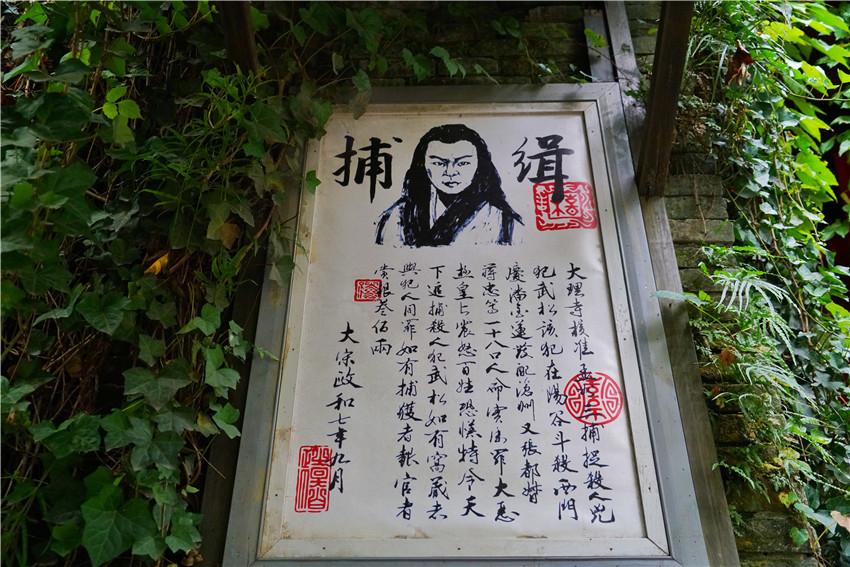 缉捕
大理寺核准孟州捕捉殺人兇
犯武松該犯在陽谷斗殺西門
慶潘金蓮發配滄州又張都督
蔣忠等一十八口人命實法罪大惡
极皇上震怒百姓恐慌特令天
下追捕殺人犯武松如有窩藏者
與犯人同罪如有捕獲者報官者
賞銀叁佰兩
大宋政和七年九月